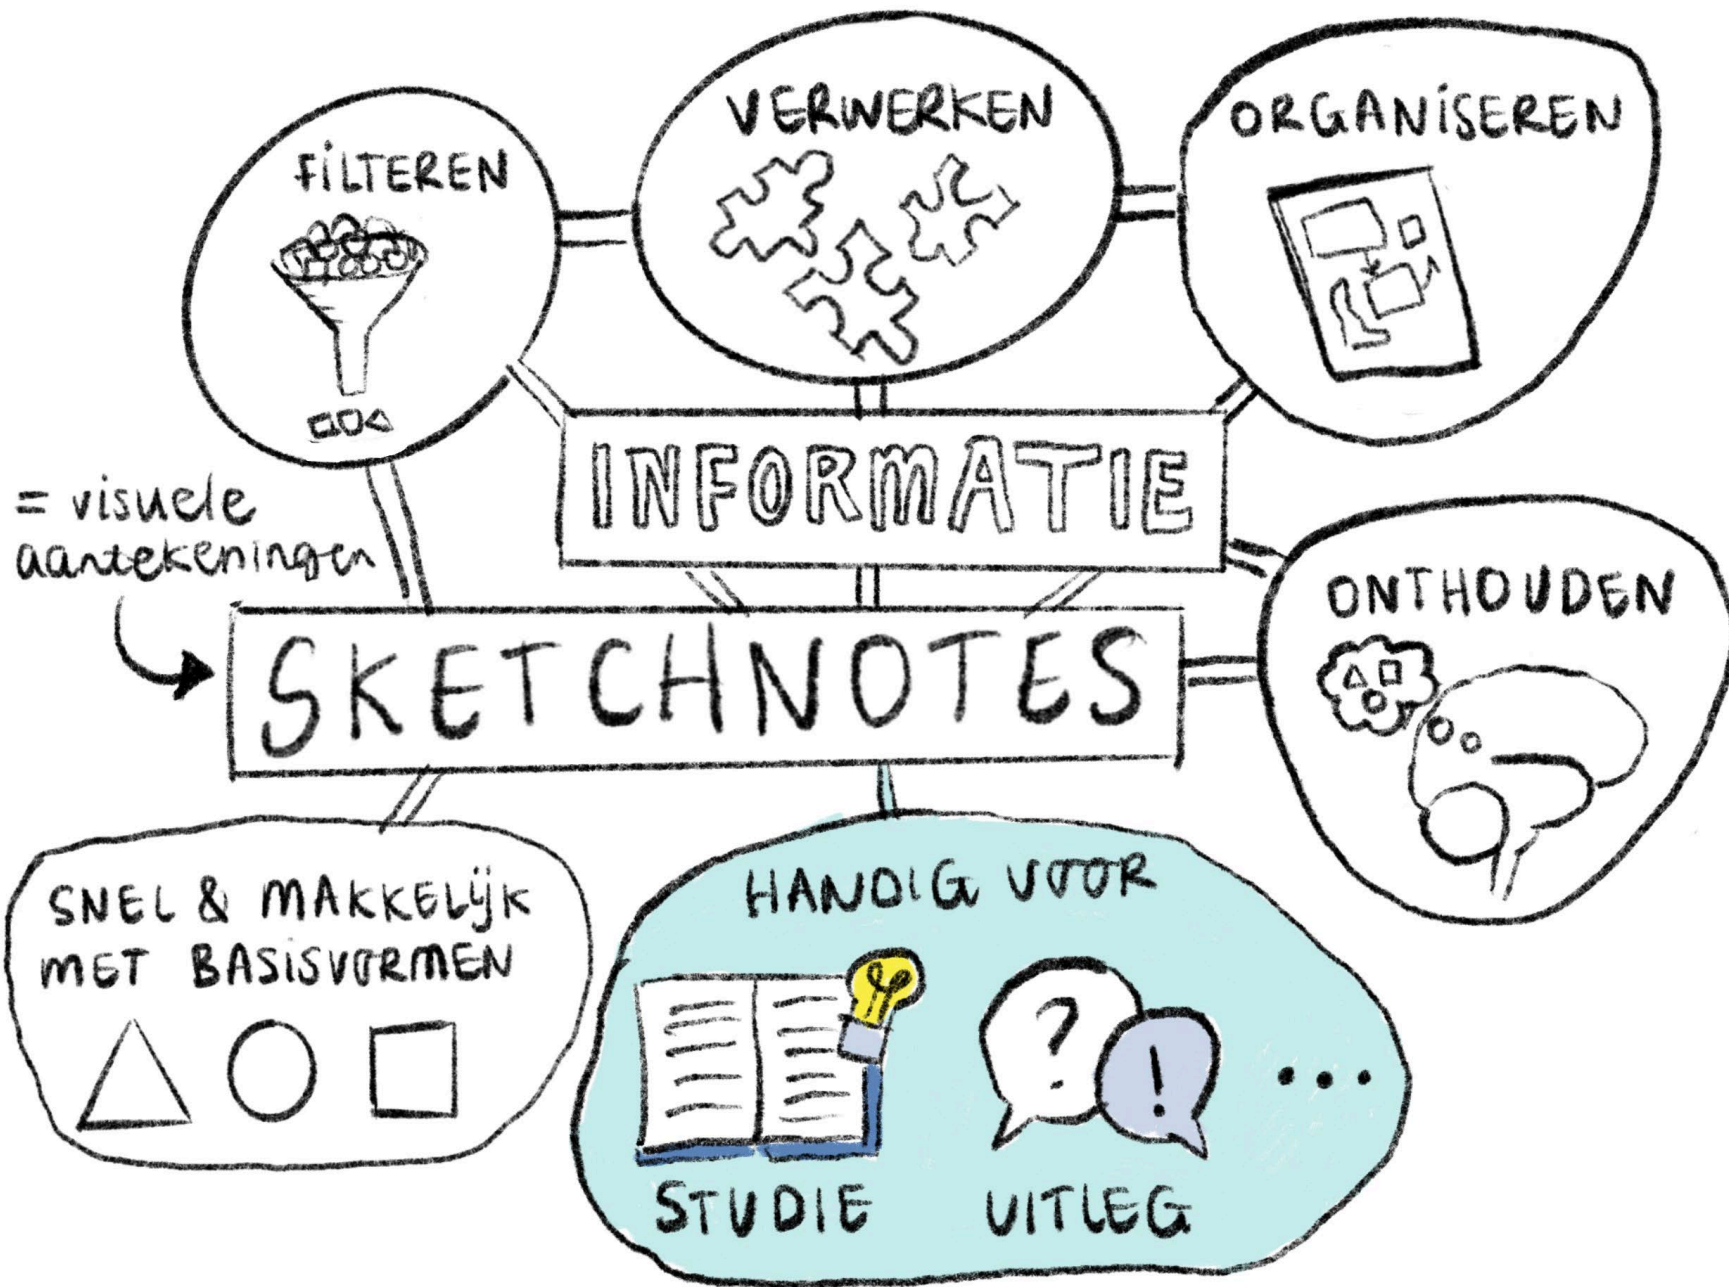 FILTEREN
VERWERKEN
ORGANISEREN
INFORMATIE
= visuele
aantekeningen
SKETCHNOTES
ONTHOUDEN
SNEL & MAKKELIJK
MET BASISVORMEN
HANDIG VOOR
?
!
...
STUDIE
UITLEG